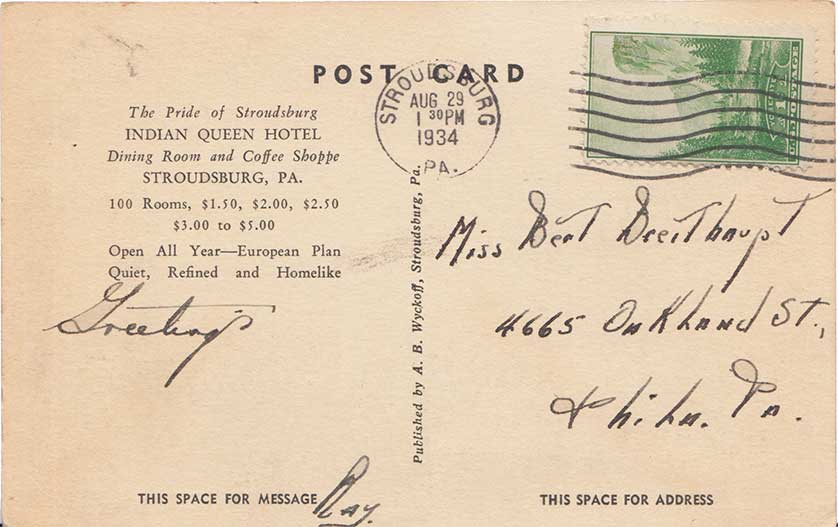 POST CARD
STROUDSBURG
AUG 29
1 30PM
1934
PA.
The Pride of Stroudsburg
INDIAN QUEEN HOTEL
Dining Room and Coffee Shoppe
STROUDSBURG, PA.
100 Rooms, $1.50, $2.00, $2.50
$3.00 to $5.00
Open All Year—European Plan
Quiet, Refined and Homelike
Greetings
Ray.
THIS SPACE FOR MESSAGE
Published by A. B. Wyckoff, Stroudsburg, Pa.
Miss Bert Breithaupt
4665 Oakland St.,
Phila. Pa.
THIS SPACE FOR ADDRESS